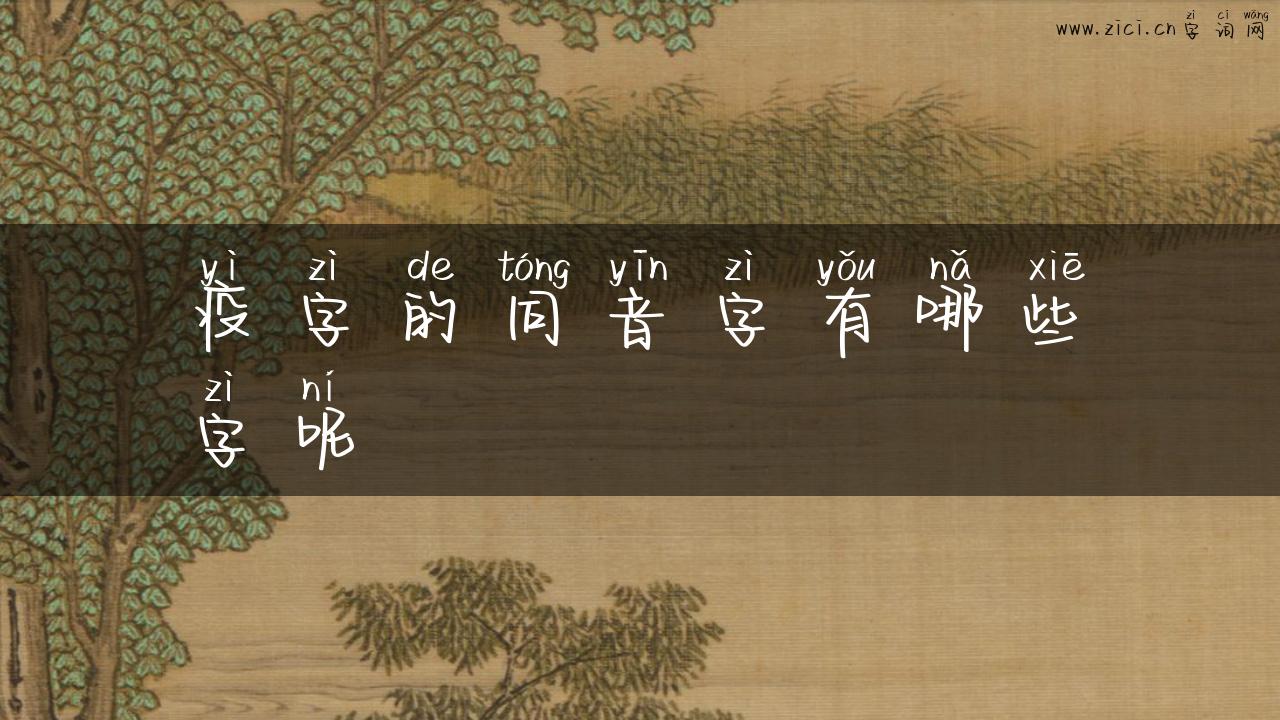 zì cí wǎng
www.zici.cn 字 词 网
yì zì de tóng yīn zì yǒu nǎ xiē
疫 字 的 同 音 字 有 哪 些
zì ní
字 呢